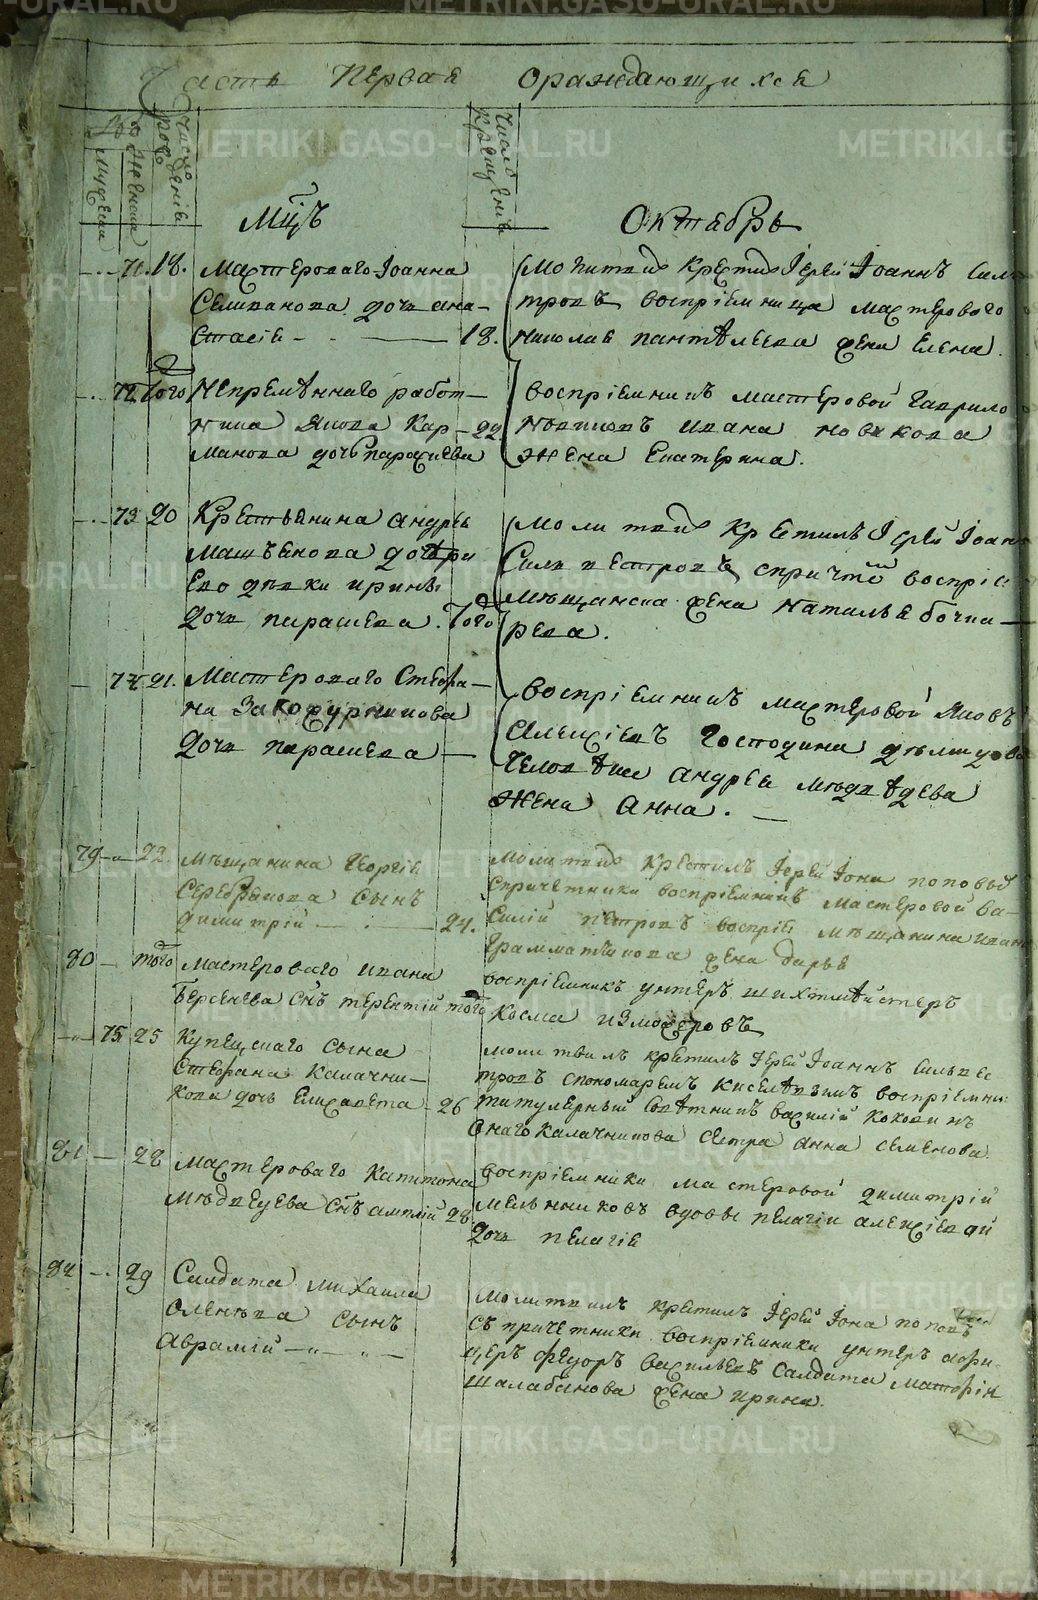 Часть Первая ораждающихся
Число рожденiя
Мужеск
Женска
Число Крещенiя
Мцъ Октябрь
71. 18. Мастероваго Iоанна
Селиванова дочь ана-
стасiе 18.
Молитвил Крестил Iерей Iоаннъ Силь
тровъ воспрiемница мастероваго
Николае пантѣлеева жена Елена.
72. Того Непремѣннаго работ-
ника Якова Кар- 22
манова дочь парасκева
воспрiемникъ мастеровой Гаврило
Новиковъ ивана новикова
Жена Екатерина.
73 20 Крестьянина андрея
дочери
Ево дѣвки ирины
дочь парасκева. Того
молитвил Крестилъ Iерей Iоан
Сильвестровъ спричтом воспрiе
мѣщанска жена Наталья бочка-
рева.
74 21. Мастероваго Стефа-
на
дочь параскева
воспрiемникъ мастеровой Яковъ
алексiевъ господина демидова
человѣка андреи медвѣдева
жена анна.
79 22. мѣщанина Георгiе
Серебрякова Сынъ
димитрiй 24.
молитвил крестилъ Iерей Iона поповъ
спричетники воспрiемникъ мастеровой ва-
силiй петровъ воспрiе мѣщанина ивана
жена дарье
80 того мастероваго ивана
Берсенева снъ терентiй того
воспрiемникъ унтеръ шихтмейстеръ
Косма изможеровъ
75 25 Купецкаго сына
Стефана Калачни-
кова дочь Елисавета 26
молитвилъ крестилъ Iерей Iоаннъ Сильвес
тровъ спономаремъ Киселевымъ воспрiемни
титулярный совѣтникъ василiй Коковинъ
онаго калачникова сестра анна семенова.
81 28 мастероваго Капитона
медведева снъ 28
воспрiемники мастеровой димитрiй
мельниковъ вдовы пелагiи алексiевой
дочь пелагiе
82 29 Салдата михаила
Оленева сынъ
Аврамiй
молитвилъ крестилъ Iерей Iона поповъ
съ причетники воспрiемники унтеръ афи-
церъ федоръ васильевъ салдата
шалабанова жена ирина.
METRIKI.GASO-URAL.RU